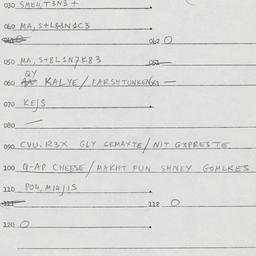 030 SME4, T3N3 +
040 MA, S+L83N1C3
042 O
050 MA, S+8L1N7K83 052 —
060 QY KALYE / FARSHTUNKEN 061 —
070 KEJS
080 —
090 CVU. R3X GLY CEMAXTE / NIT G3PRESTE
100 Q-AP CHEESE / MAKHT FUN SHNEY GOMLKES
110 PO4, M14/1S
112 O
120 O